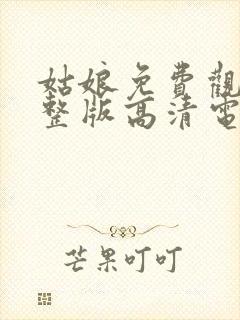 姑娘免費觀
整版高清電
芒果叮叮